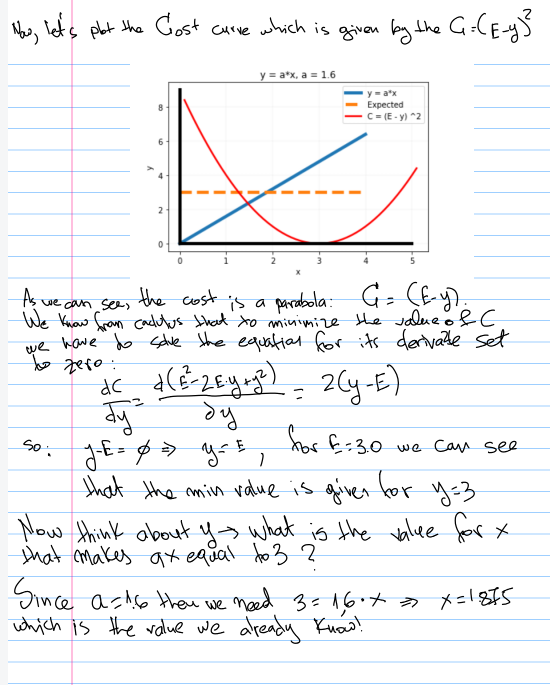 Now, let's plot the Cost curve which is given by the C=(E-y)²
y = a*x, a = 1.6
y = a*x
Expected
C = (E - y) ^2
y
8
6
4
2
0
0 1 2 3 4 5
x
As we can see, the cost is a parabola: C = (E-y).
We know from calculus that to minimize the value of C
we have to solve the equation for its derivate set
to zero:
dC/dy = d(E²-2E·y+y²)/dy = 2(y-E)
so: y-E = ∅ ⇒ y=E, for E=3.0 we can see
that the min value is given for y=3
Now think about y → what is the value for x
that makes ax equal to 3 ?
Since a=1.6 then we need 3 = 1,6·x ⇒ x=1.875
which is the value we already know!